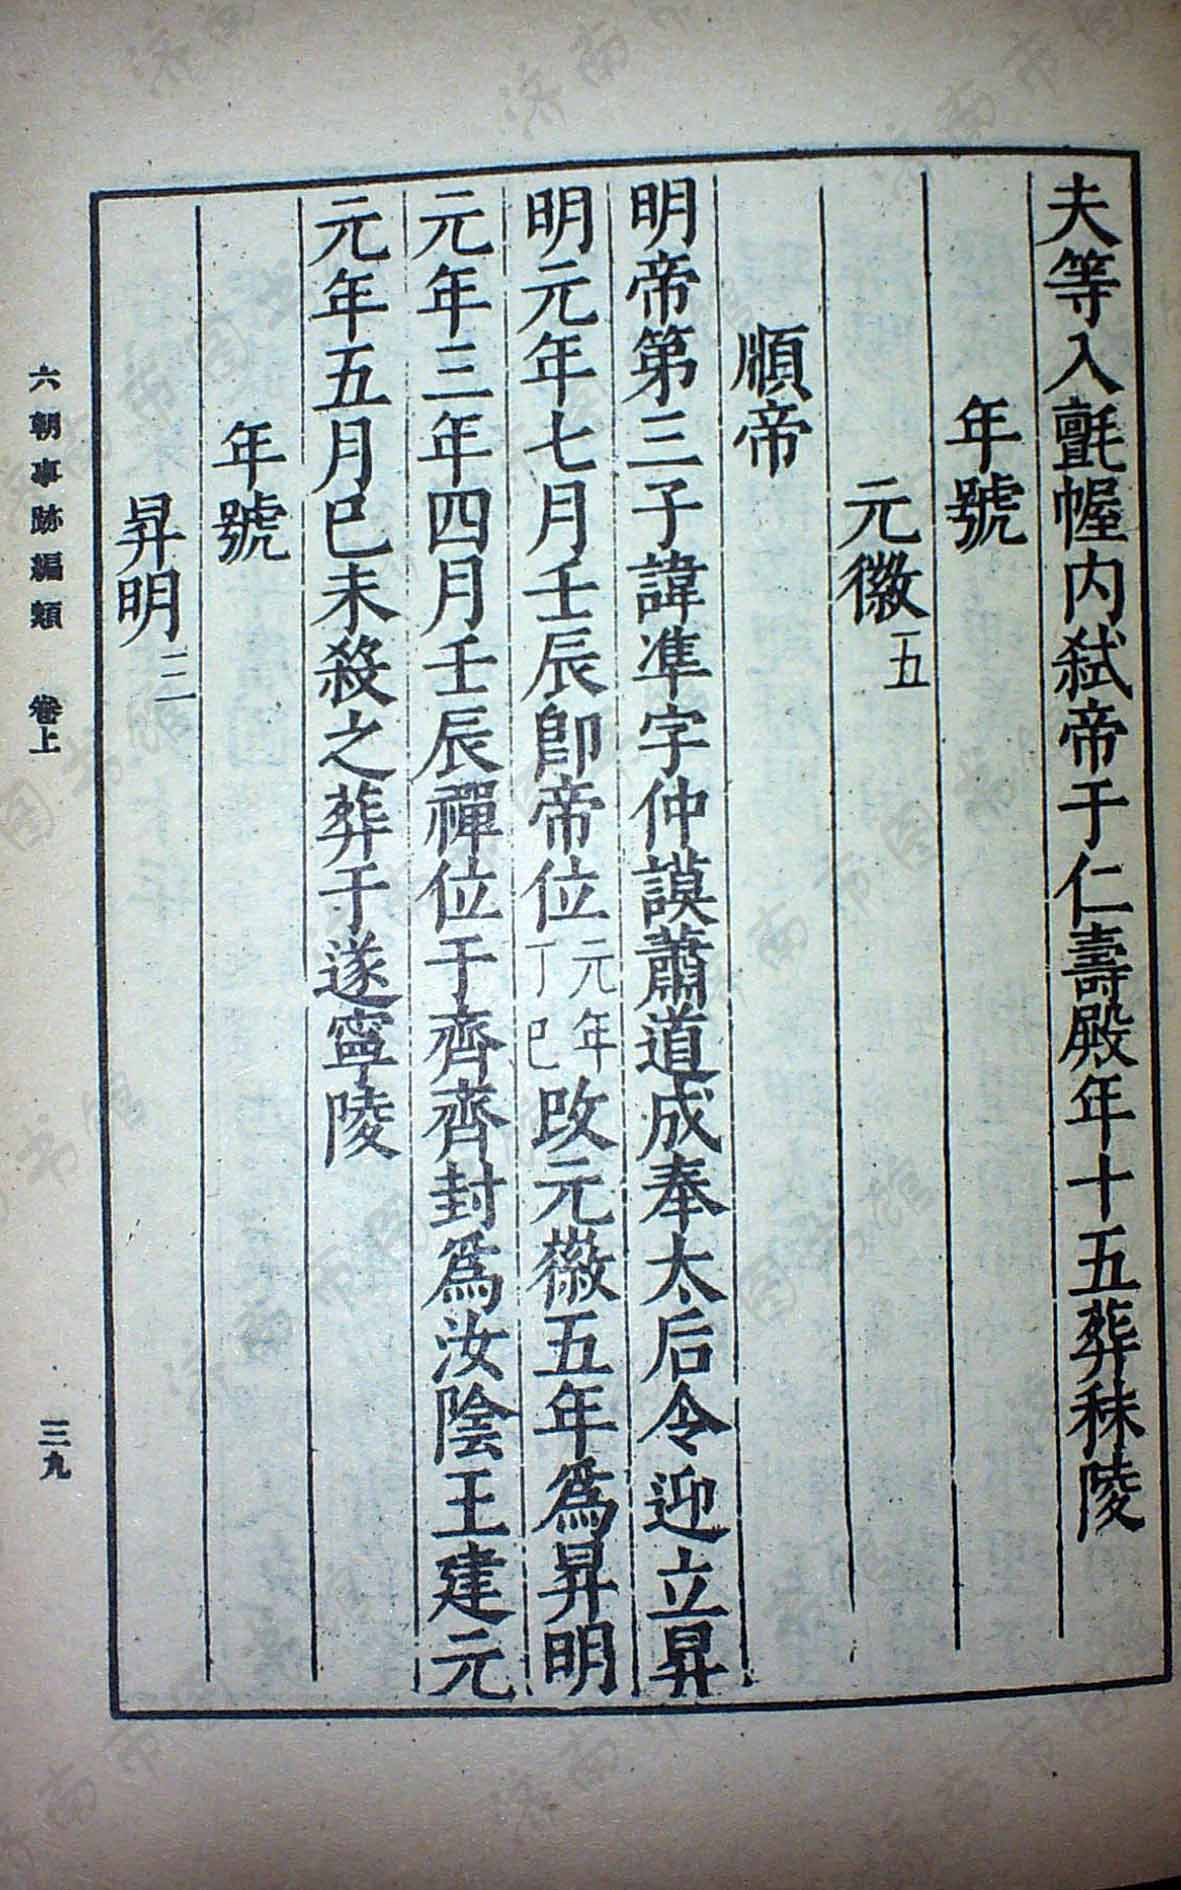 夫等入氈幄内弑帝于仁壽殿年十五葬秣陵
年號
元徽五
順帝
明帝第三子諱準字仲謨蕭道成奉太后令迎立昇
明元年七月壬辰卽帝位元年丁巳改元徽五年為昇明
元年三年四月壬辰禪位于齊齊封為汝陰王建元
元年五月巳未殺之葬于遂寧陵
年號
昇明三
六朝事跡編類 卷上
三九
济南市图书馆